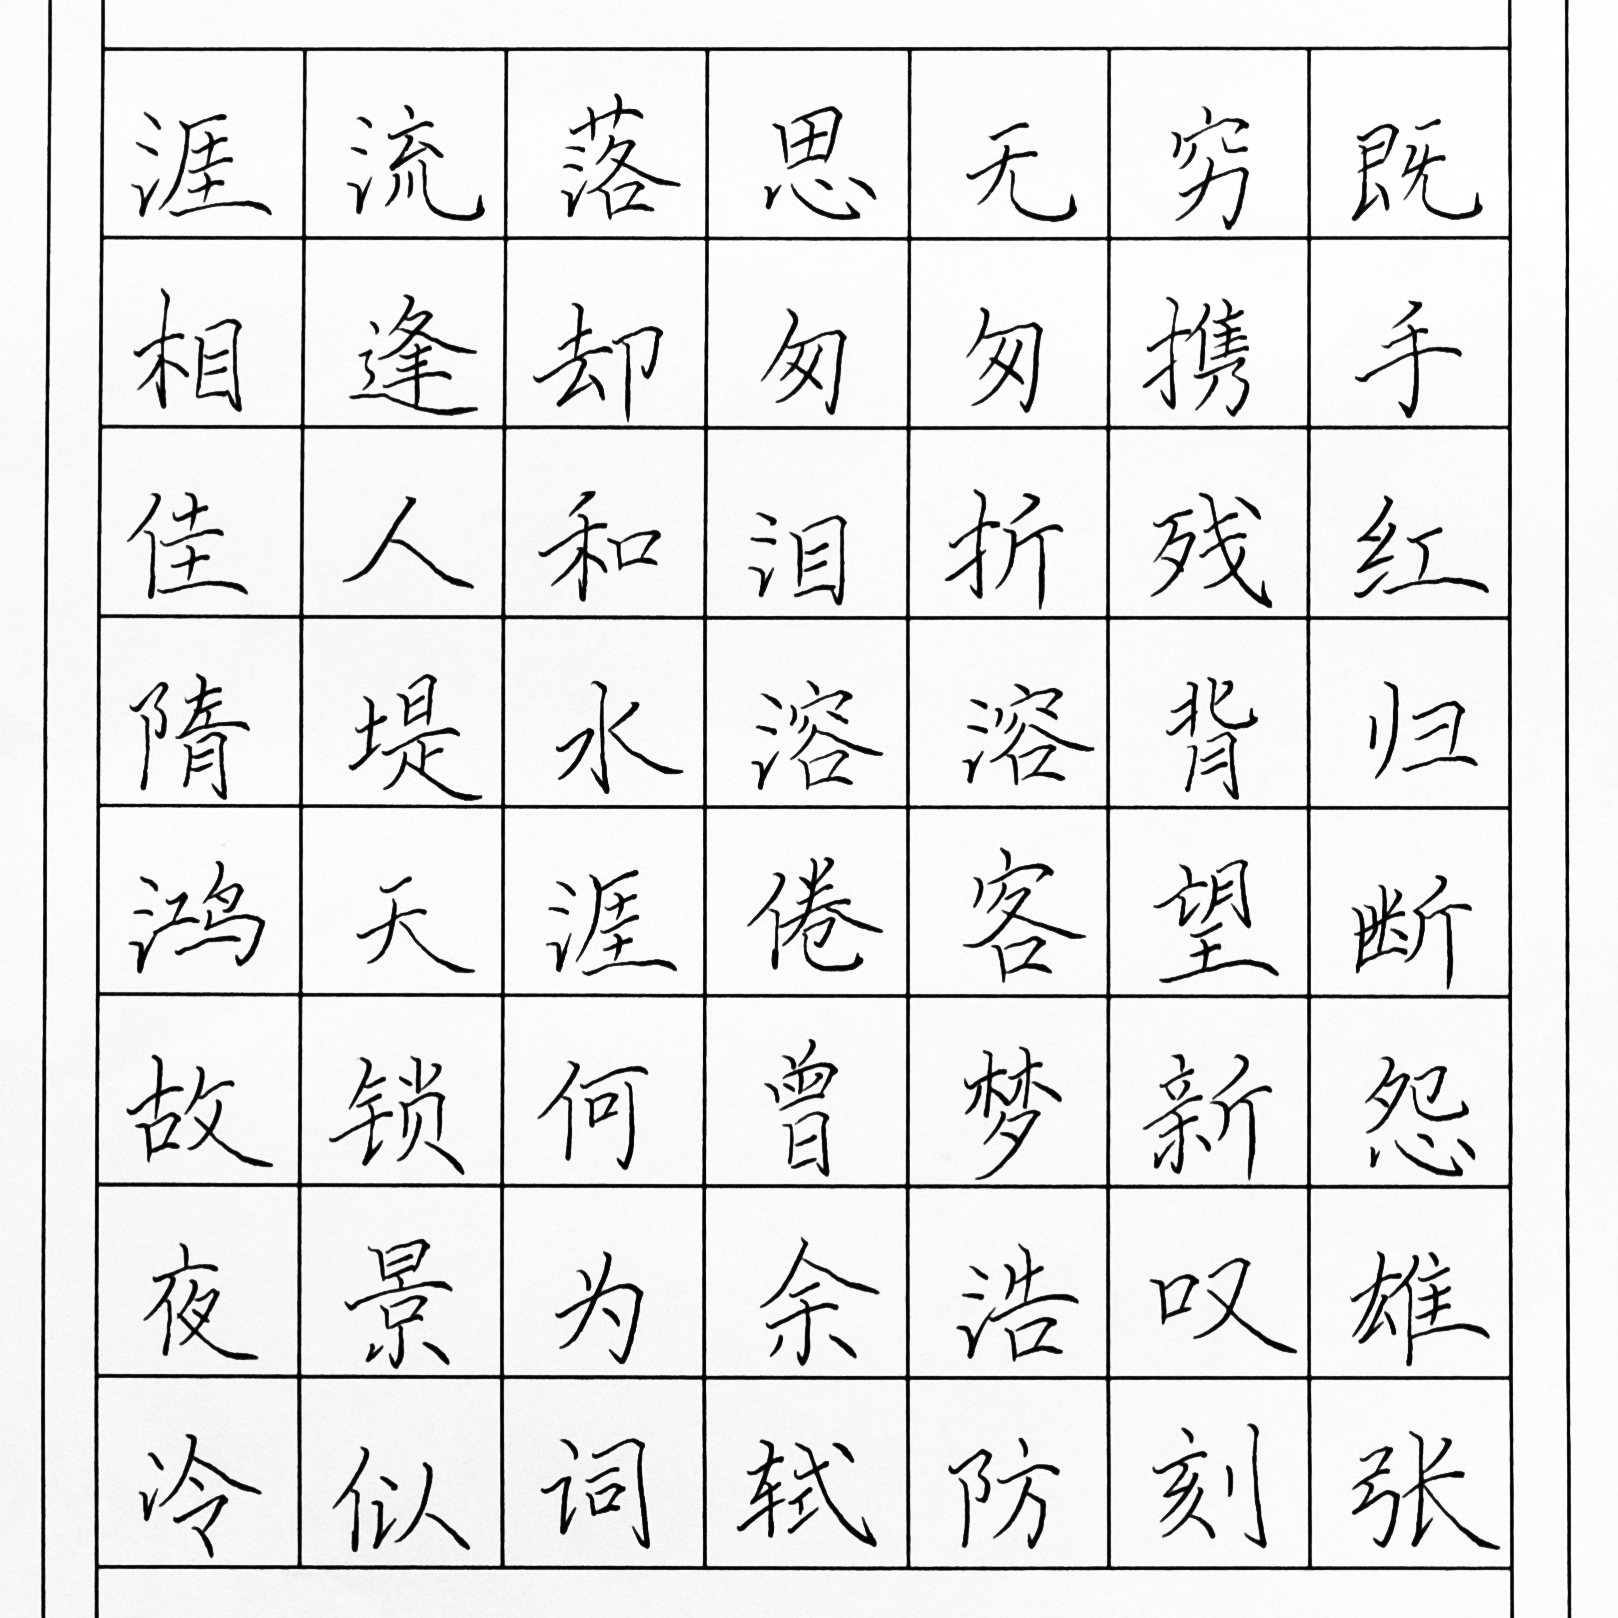 涯流落思无穷既
相逢却匆匆携手
佳人和泪折残红
隋堤水溶溶背归
鸿天涯倦客望断
故锁何曾梦新怨
夜景为余浩叹雄
冷似词轼防刻张